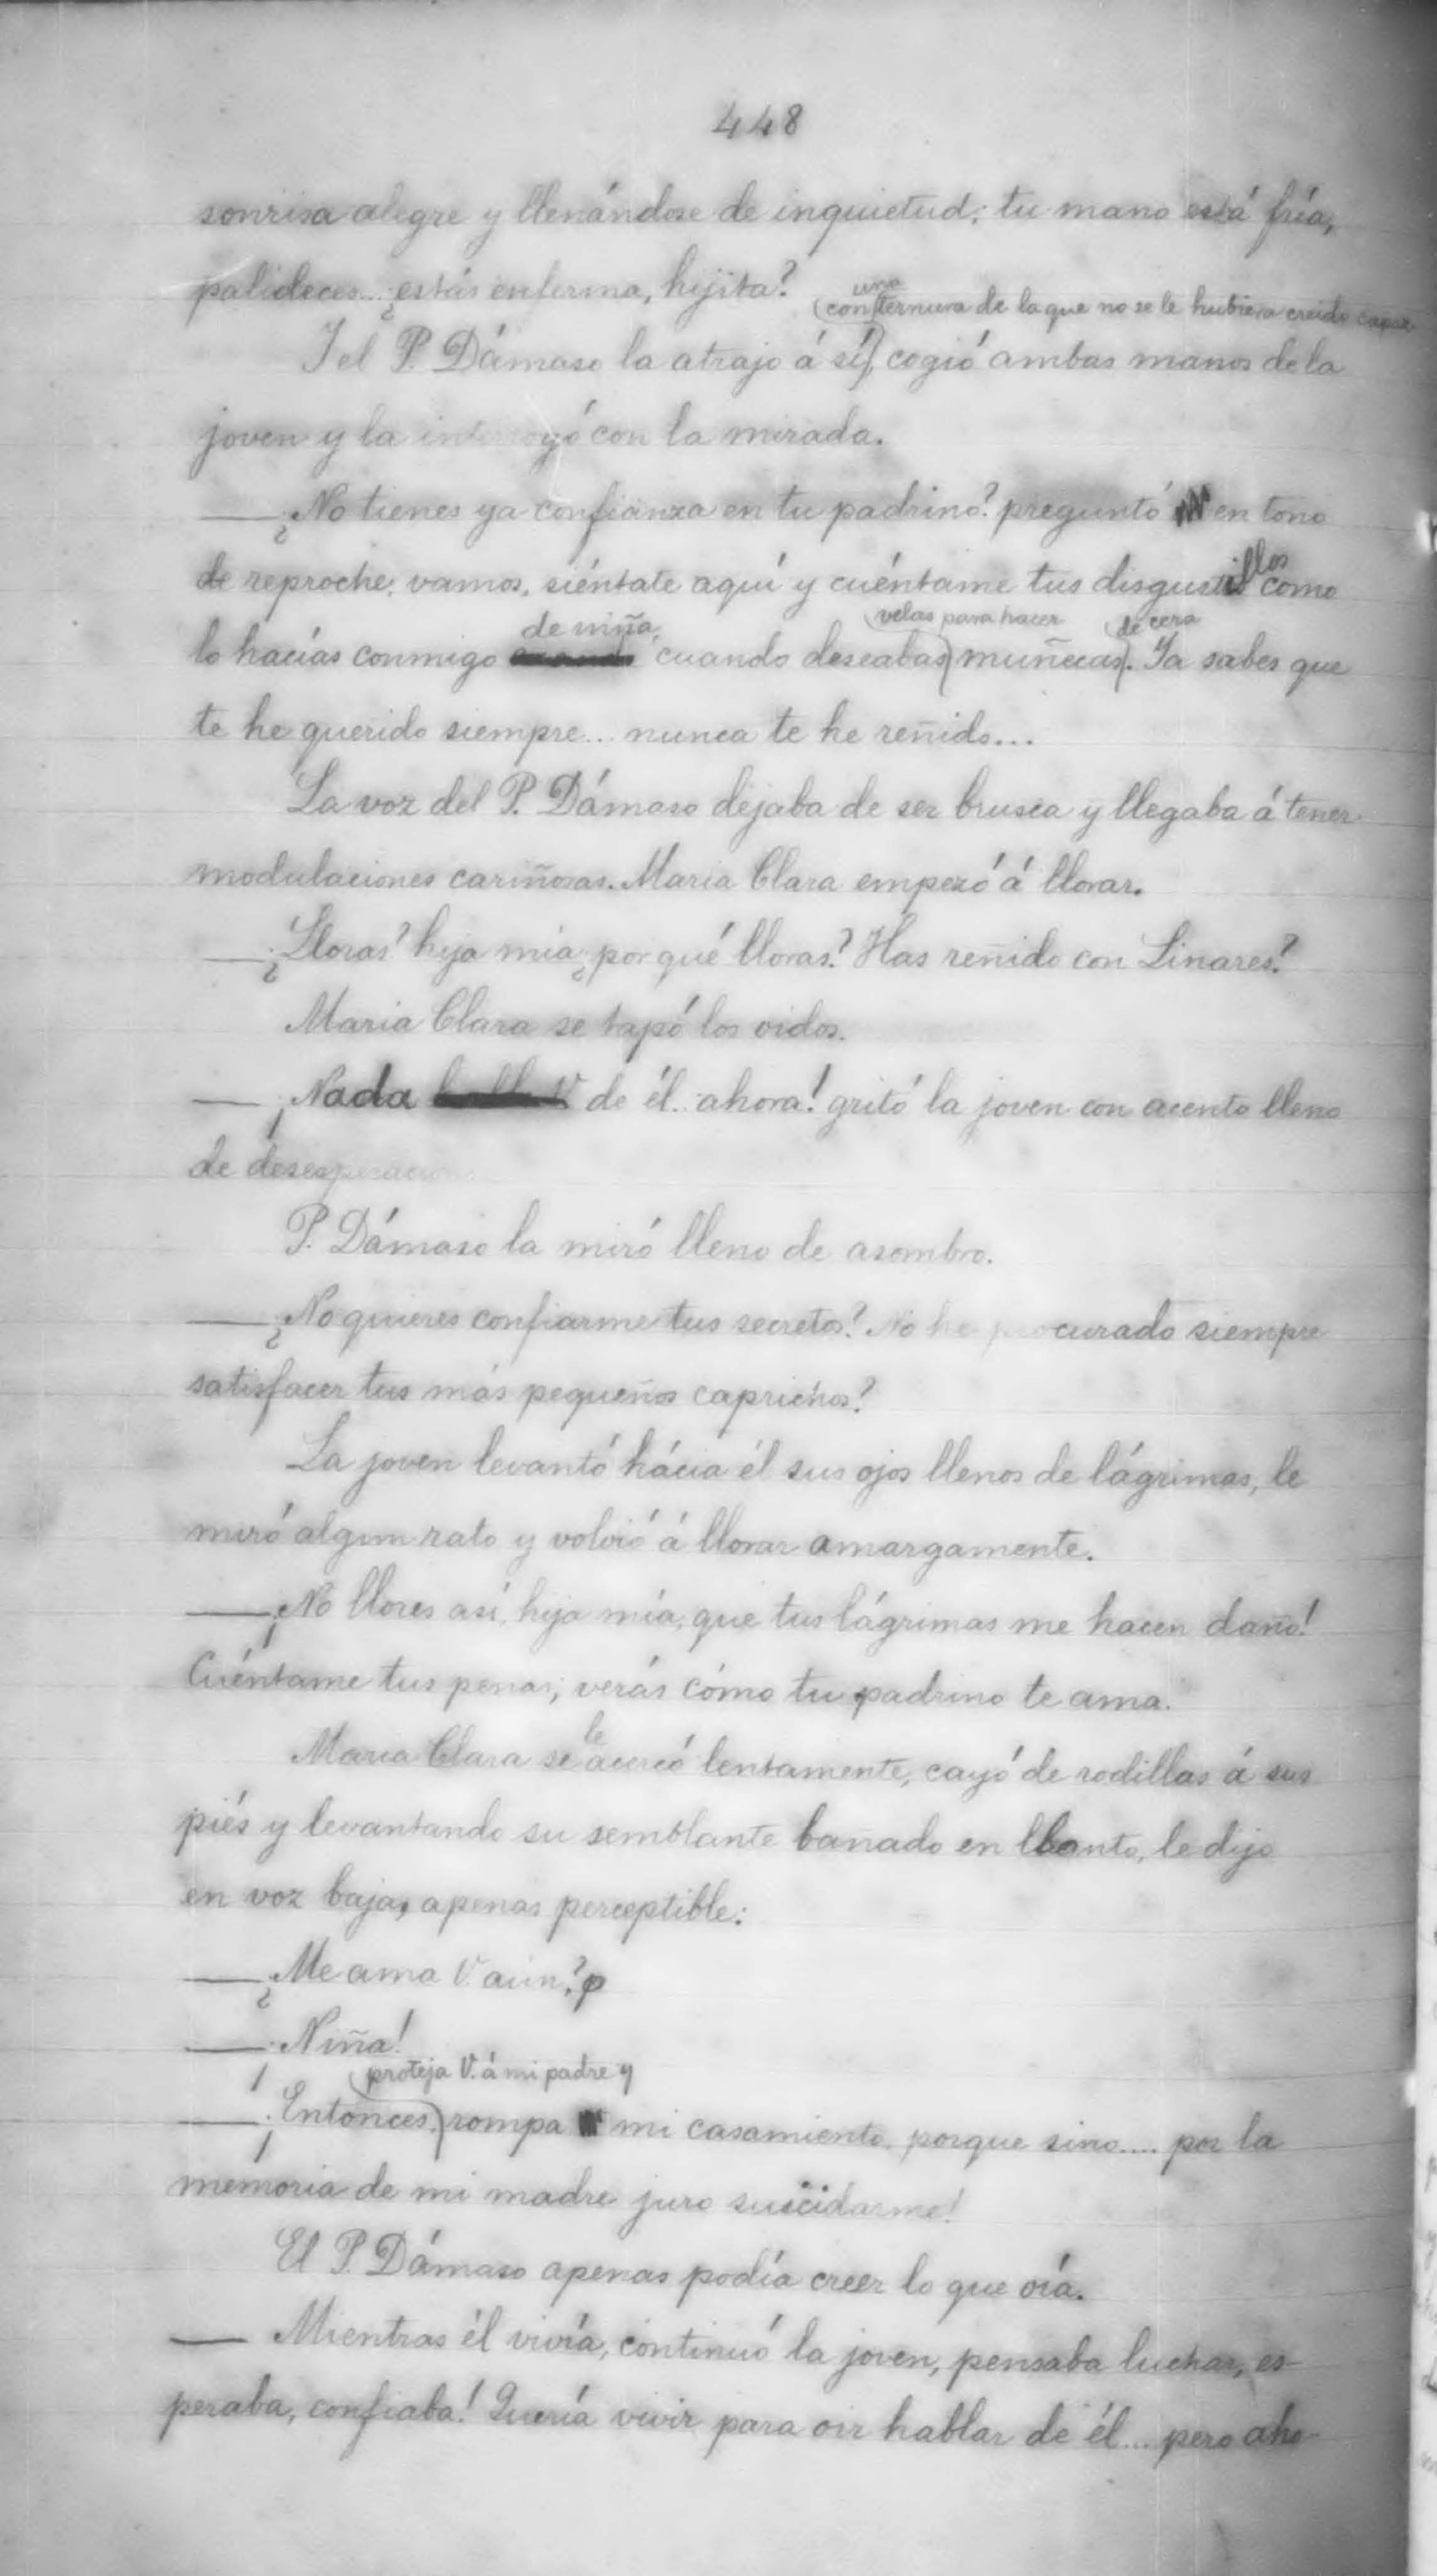 448
sonrisa alegre y llenándose de inquietud; tu mano está fría,
palideces... ¿estás enferma, hijita?
(con una ternura de la que no se le hubiera creido capaz
Y el P. Dámaso la atrajo á sí), cogió ambas manos de la
joven y la interrogó con la mirada.
— ¿No tienes ya confianza en tu padrino? preguntó en tono
de reproche; vamos, siéntate aquí y cuéntame tus disgustillos como
de niña, (velas para hacer (de cera
lo hacías conmigo cuando deseabas) muñecas). Ya sabes que
te he querido siempre... nunca te he reñido...
La voz del P. Dámaso dejaba de ser brusca y llegaba á tener
modulaciones cariñosas. Maria Clara empezó á llorar.
— ¿Lloras? hija mía ¿por qué lloras? Has reñido con Linares?
Maria Clara se tapó los oidos.
— ¡Nada de él... ahora! gritó la joven con acento lleno
de desesperacion.
P. Dámaso la miró lleno de asombro.
— ¿No quieres confiarme tus secretos? No he procurado siempre
satisfacer tus más pequeños caprichos?
La joven levantó hácia él sus ojos llenos de lágrimas, le
miró algun rato y volvió á llorar amargamente.
— ¡No llores así, hija mía, que tus lágrimas me hacen daño!
Cuéntame tus penas; verás cómo tu padrino te ama.
Maria Clara se le acercó lentamente, cayó de rodillas á sus
piés y levantando su semblante banado en llanto, le dijo
en voz baja, apenas perceptible:
— ¿Me ama V. aún?
— ¡Niña!
(proteja V. á mi padre y
— ¡Entonces) rompa mi casamiento, porque sino.... por la
memoria de mi madre juro suicidarme!
El P. Dámaso apenas podía creer lo que oía.
— Mientras él vivía, continuó la joven, pensaba luchar, es-
peraba, confiaba! Quería vivir para oir hablar de él... pero aho-